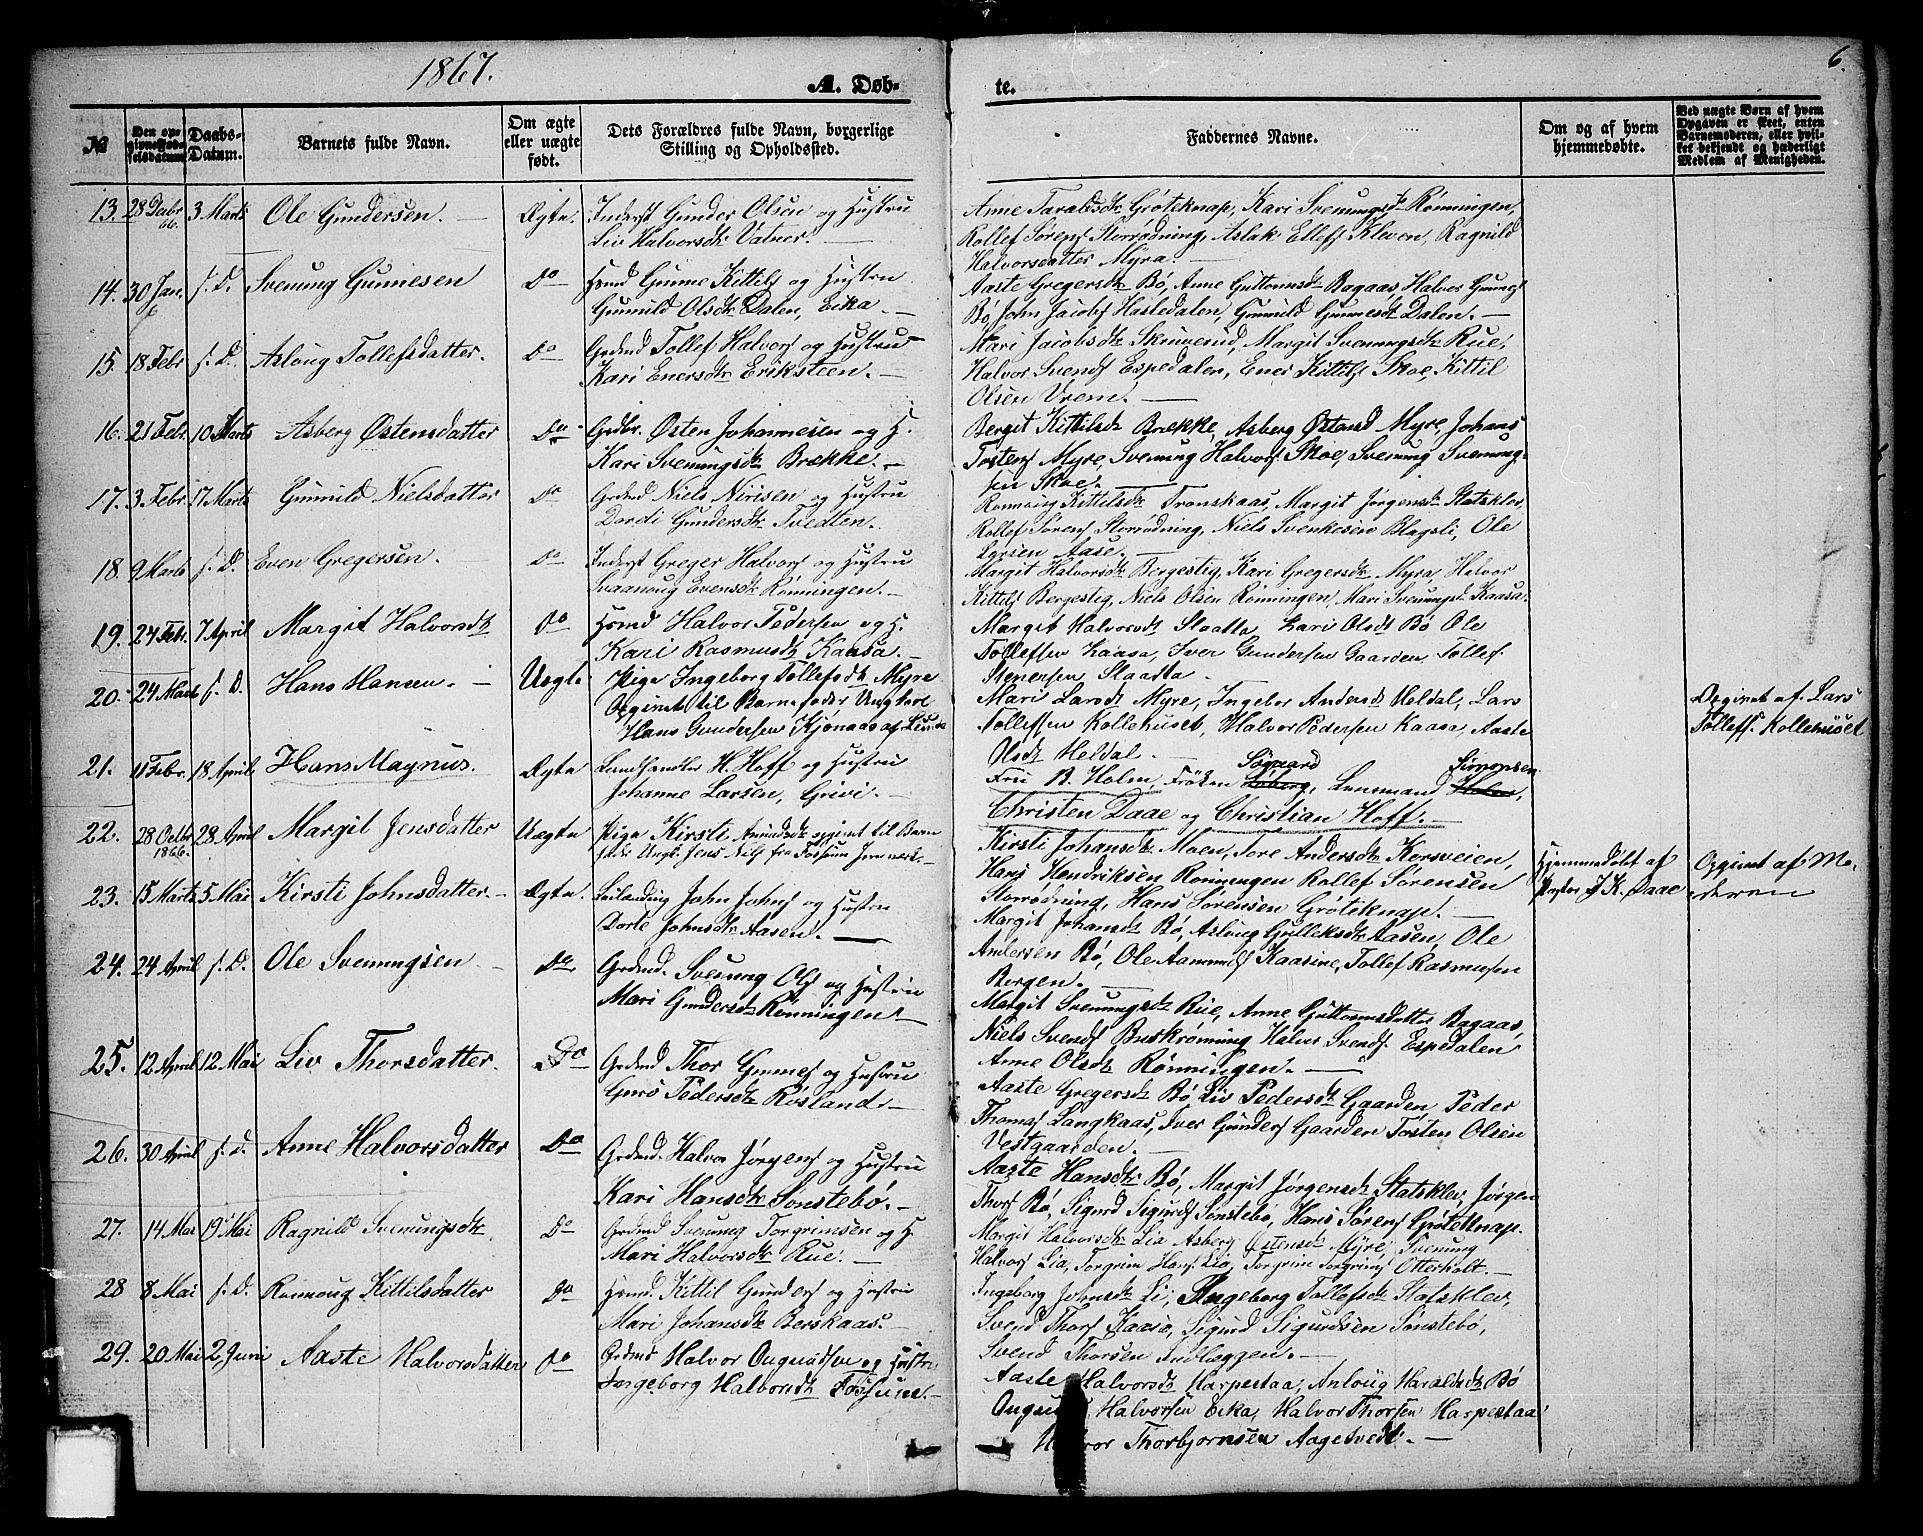 1867.
A. Døb-
te.
6.
№
Den op-
givne Fød-
selsdatum.
Daabs-
Datum.
Barnets fulde Navn.
Om ægte
eller uægte
født.
Dets Forældres fulde Navn, borgerlige
Stilling og Opholdssted.
Faddernes Navne.
Om og af hvem
hjemmedøbte.
Ved uægte Børn af hvem
Opgaven er skeet, enten
Barnemoderen, eller hvil-
ket bekjendt og hæderligt
Medlem af Menigheden.
13. 28 Decbr 66. 3 Marts Ole Gundersen. Ægte. Inderst Gunder Olsen og Hustru
Liv Halvorsdtr Vatner.
Anne Taraldsdtr Grøteknap, Kari Svenungsdtr Rønningen,
Rollef Sørens Storrødning, Aslak Ellefs Kleven, Ragnild
Halvorsdatter Myra.
14. 30 Jan. s. D. Svenung Gunnesen Do Hsmd Gunne Kittils og Hustru
Gunuld Olsdtr Dalen, Eika.
Aaste Gregersdtr Bø, Anne Guttormsdtr Bagaas, Halvor
Bø, John Jacobs Hastedalen, Gunuld Gunnesdtr Dalen.
15. 18 Febr s. D. Asloug Tollefsdatter. Do Grdmd Tollef Halvors og Hustru
Kari Enersdtr Eriksteen.
Mari Jacobsdtr Skruverud, Margit Svenungsdtr Rue,
Halvor Svends Espedalen, Ener Kittils Skoe, Kittil
Olsen Vrem.
16. 21 Febr. 10 Marts Asberg Østensdatter Do Grdbr. Østen Johannesen og H.
Kari Svenungsdtr Brække.
Bergit Kittilsdtr Brække, Asberg Østensd Myre, Johans
Tostens Myre, Svenung Halvors Skoe, Svenung Svenung-
sen Skoe.
17. 3 Febr. 17 Marts Gunuld Nielsdatter Do Grdmd Niels Nirisen og Hustru
Dordi Gundersdtr Tvedten.
Rønnoug Kittilsdtr Transkaas, Margit Jørgensdtr Statsklev
Rollef Sørens Storrødning, Niels Svenkesen Blagsli, Ole
Larsen Aase.
18. 9 Marts s. D. Even Gregersen. Do Inderst Greger Halvors og Hustru
Svaanoug Evensdtr Rønningen.
Margit Halvorsdtr Bergestig, Kari Gregersdtr Myra, Halvor
Kittils Bergestig, Niels Olsen Rønningen, Mari Svenungsd. Kaasa.
19. 24 Febr. 7 April Margit Halvorsdtr Do Hsmd Halvor Pedersen og H.
Kari Rasmusdtr Kaasa.
Margit Halvorsdtr Slaatta Kari Olsdt Bø Ole
Tollefsen Kaasa, Iver Gundersen Gaarden, Tollef
Stenersen Slaatta.
20. 24 Marts s. D. Hans Hansen. Uægte Pige Ingeborg Tollefsdtr Myre
Opgivet til Barnefader Ungkarl
Hans Gundersen Kjønaas af
Mari Larsdt Myre, Ingebor Andersdt Heldal, Lars
Tollefsen Kollehuset, Halvor Pedersen Kaasa, Aaste
Olsdt Heldal.
Opgivet af Lars
Tollefs. Kollehuset
21. 11 Febr. 18 April Hans Magnus. Ægte Landhandler H. Hoff og Hustru
Johanne Larsen, Grivi.
Søgaard Simonsen
Fru B. Holm, Frøken Søberg, Lensmand Holm,
Christen Daae og Christian Hoff.
22. 28 Octbr 1866. 28 April Margit Jensdatter Uægte Pige Kirsti Amundsdtr opgivet til Barne
fader Ungk. Jens Nils fra Fossum Jernværk.
Kirsti Johansdtr Moen, Tore Andersdtr Korsveien,
Hans Hendriksen Rønningen Rollef Sørensen
Storrødning, Hans Sørensen Grøteknap.
Hjemmedøbt af
Pastor J. K. Daae
Opgivet af Mo-
deren
23. 15 Marts 5 Mai Kirsti Johnsdatter. Ægte. Leilænding John Johns og Hustru
Dorte Johnsdtr Aasen.
Margit Johansdtr Bø, Aslaug Gulleksdtr Aasen, Ole
Andersen Bø, Ole Aamunds Kaasine, Tollef Rasmusen
Bergen.
24. 24 April s. D. Ole Svenungsen Do. Grdmd. Svenung Ols og Hustru
Mari Gundersdtr Rønningen.
Margit Svenungsdtr Rue, Anne Guttormsdatter Bagaas,
Niels Svends Buskrønning Halvor Svends. Espedalen
Anne Olsdtr Rønningen.
25. 12 April 12 Mai Liv Thorsdatter. Do Grdmd Thor Gunnes og Hustru
Guro Pedersdtr Røsland.
Aaste Gregersdtr Bø, Liv Pedersdtr Gaarden Peder
Thomas Langkaas, Iver Gunders Gaarden Tosten Olsen
Vestgaarden.
26. 30 April s. d. Anne Halvorsdatter Do Grdmd. Halvor Jørgens og Hustru
Kari Hansdtr Sønstebø.
Aaste Hansdtr Bø, Margit Jørgensdtr Statsklev, Jørgen
Thors Bø, Sigurd Sigurds Sønstebø, Hans Sørens Grøteknap.
27. 14 Mai 19 Mai Ragnild Svenungsdtr. Do Grdmd Svenung Torgrimsen og H.
Mari Halvorsdtr Rue.
Margit Halvorsdtr Lia Asberg Østensdtr Myre, Svenung
Halvors Lia, Torgrim Hans Lia, Torgrim Torgrims Otterholt.
28 8 Mai s. D. Rønnoug Kittilsdatter Do Hsmd. Kittil Gunders og Hustru
Mari Johansdtr Berskaas.
Ingeborg Johnsdtr Li, Ingeborg Tollefsdtr Statsklev,
Svend Thors Kaasa, Sigurd Sigurdsen Sønstebø,
Svend Thorsen
29. 20 Mai 2 Juni Aaste Halvorsdatter Do Grdmd Halvor Ougundsen og Hustru
Ingeborg Halvorsdt Fossune.
Aaste Halvorsdtr Harpestaa, Anloug Haraldsdtr Bø
Halvorsen Eika, Halvor Thorsen Harpestaa
Halvor Thorbjørnsen Aagetvedt.